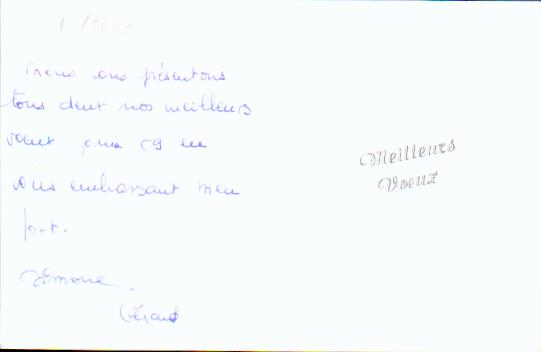 vous présentons
tous deux nos meilleurs
voeux pour 69 en
vous embrassant bien
fort.
Simone
Gérard
Meilleurs
Voeux